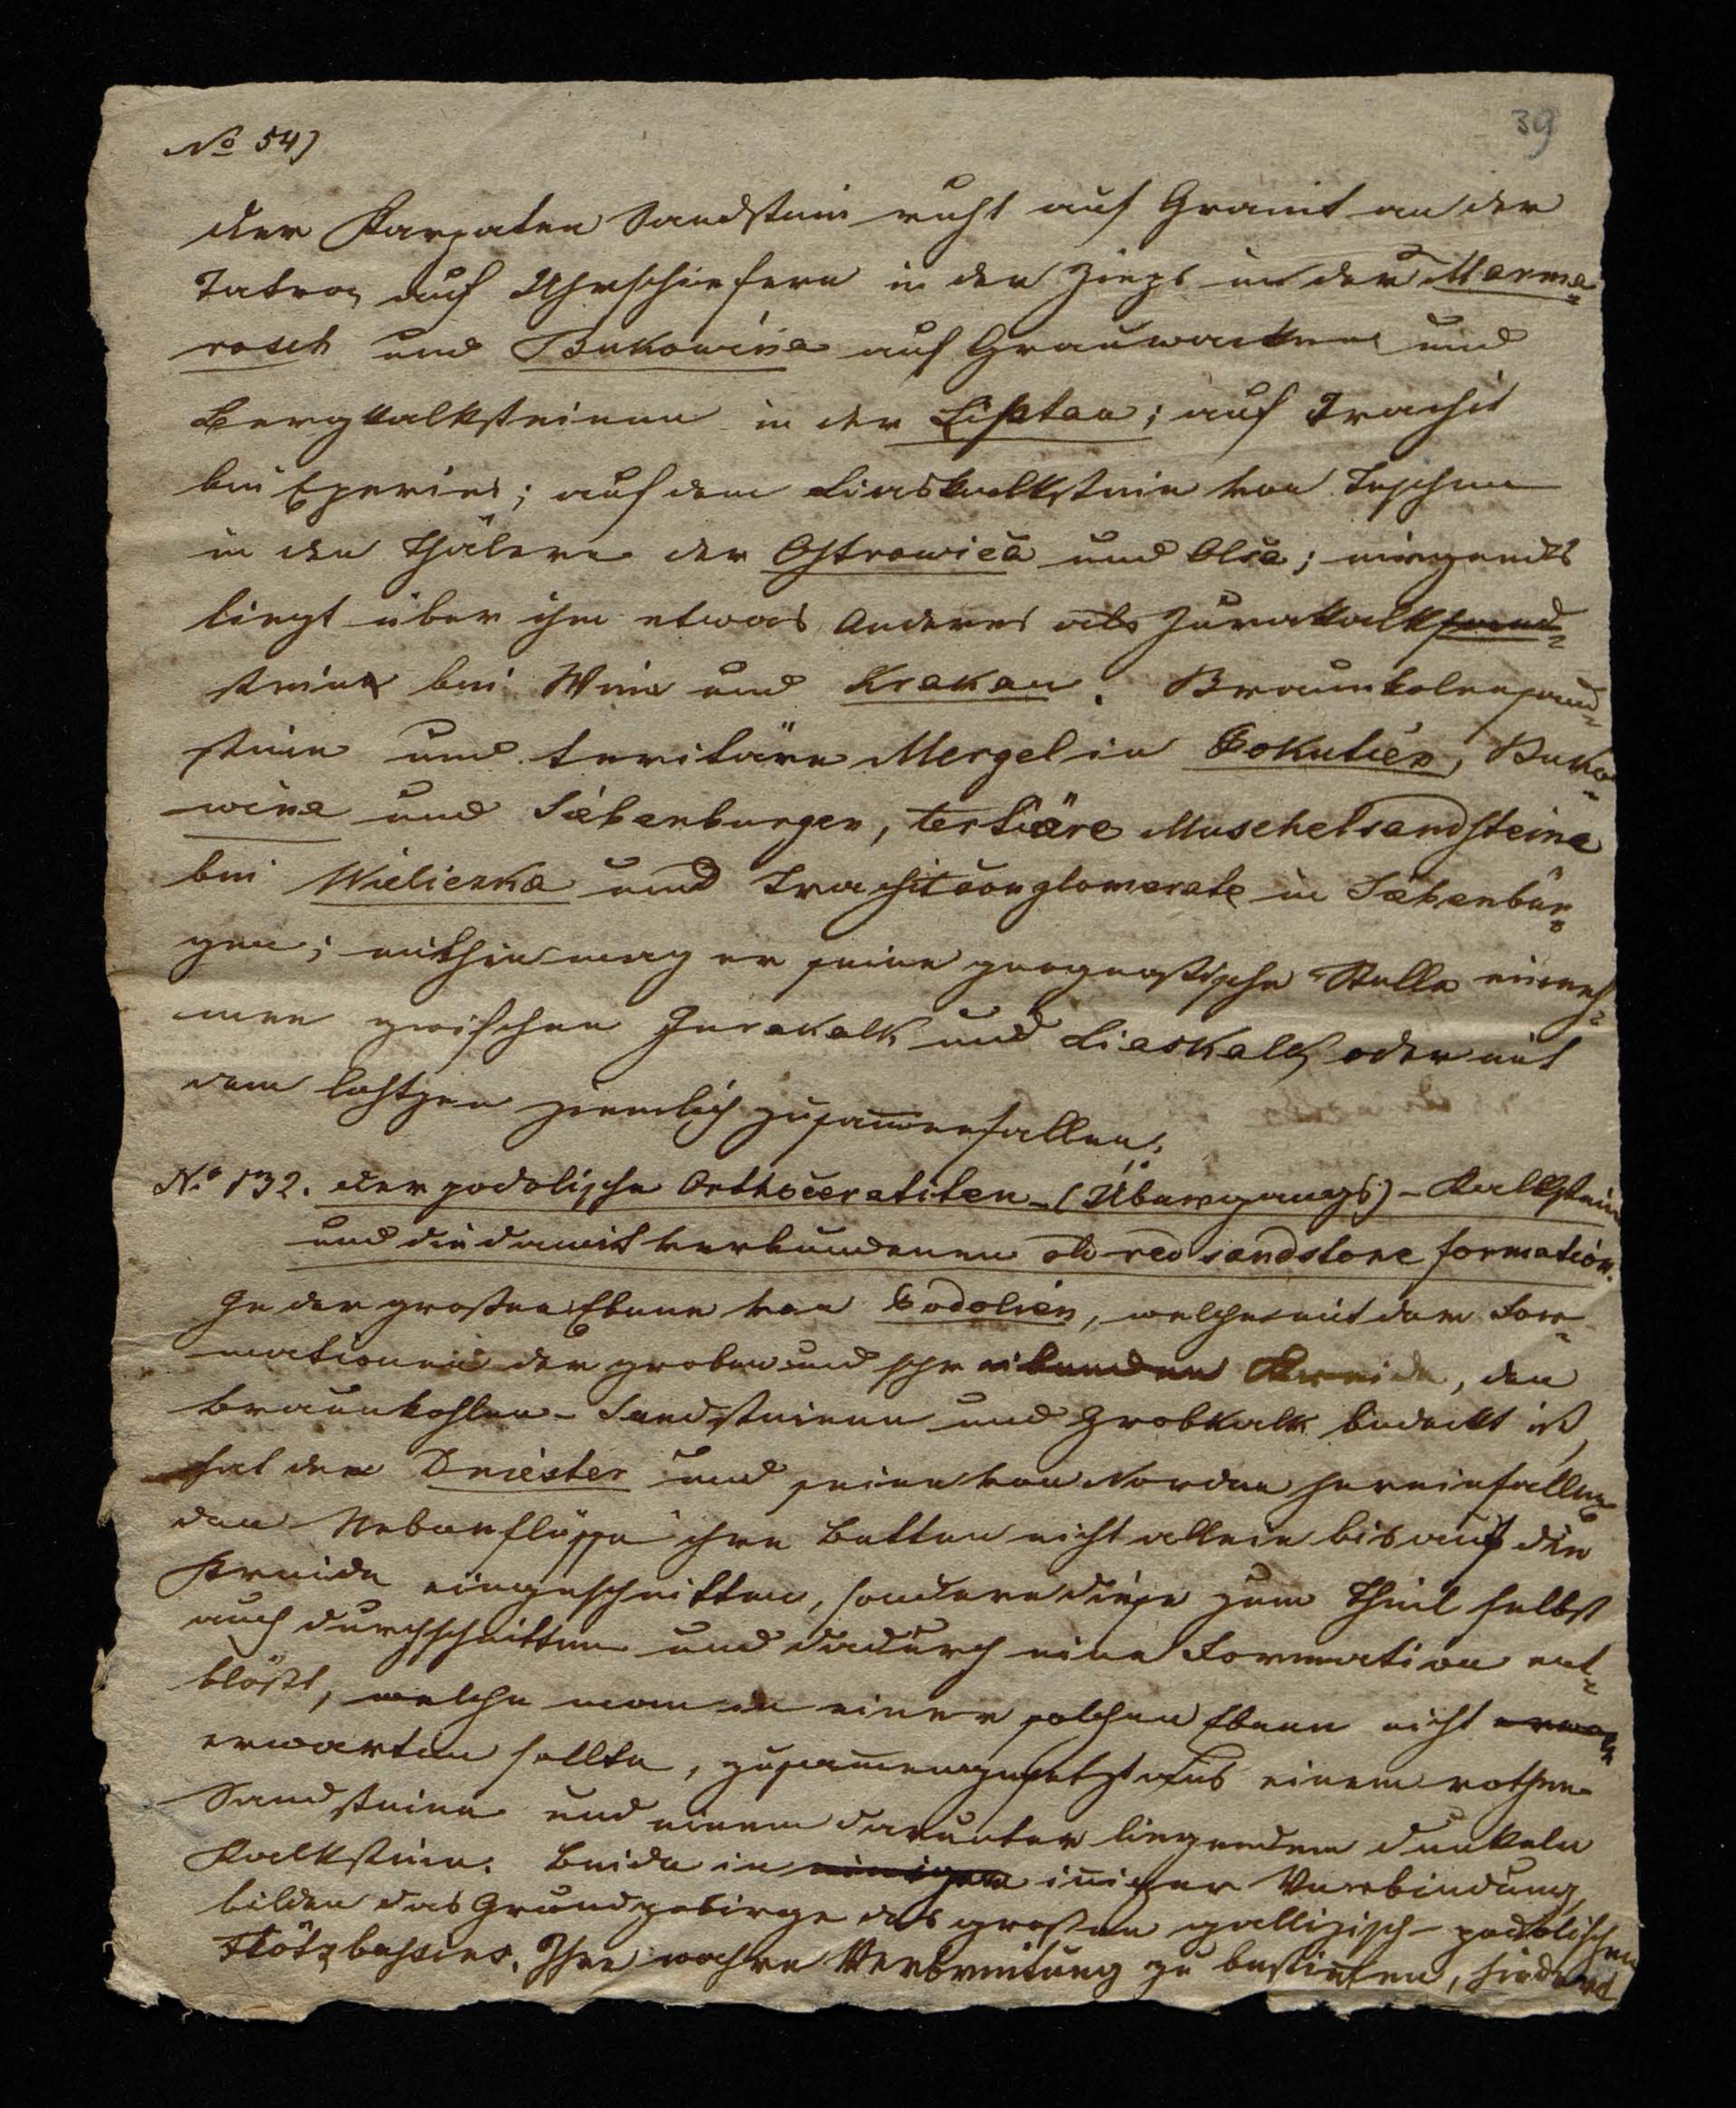 39
No 54)
der Karpaten Sandstein ruht auf Granit an der
Tatra, auf Uhrschiefern in der Zieps in der Marma-
rosch und Bukowina auf Grauwacken und
Bergkalksteinen in der Liptau; auf Trachit
bei Eperies; auf dem Liaskalkstein von Teschen
in den Thälern der Ostrawica und Olsa; nirgends
liegt über ihm etwas Anderes als Jurakalksand-
stein bei Wien und Krakau. Braunkolensand-
stein und teritäre Mergel in Pokutien, Buko-
wina und Siebenburgen, tertiäre Muschelsandsteine
bei Wieliczka und Trachitconglomerate in Siebenbür-
gen; mithin mag er seine geognostische Stelle einneh-
men zwischen Jurakalk und Liaskalk oder mit
dem letzten ziemlich zusam̅enfallen.
No 132. der podolische Orthoceratiten-(Übergangs)-Kalkstein
und die damit verbundenen old red sandstone formation.
In der großen Ebene von Podolien, welche mit den For-
mationen der groben und schreibenden Kreide, den
Braunkohlen-Sandsteinen und Grobkalk bedeckt ist,
hat der Dniester und seine von Norden hereinfallen-
den Nebenflüsse ihre Betten nicht allein bis auf die
Kreide eingeschnitten, sondern diese zum Theil selbst
auch durchschnitten und dadurch eine Formation ent-
blößt, welche man in einer solchen Ebene nicht
erwarten sollte, zusam̅engesetzt aus einem rothen
Sandsteine und einem darunter liegendem dunkeln
Kalkstein. Beide in einigen in̅iger Verbindung,
bilden das Grundgebirge des großen gallizisch-podolischen
Flötzbassins. Ihre wahre Verbreitung zu bestim̅en,